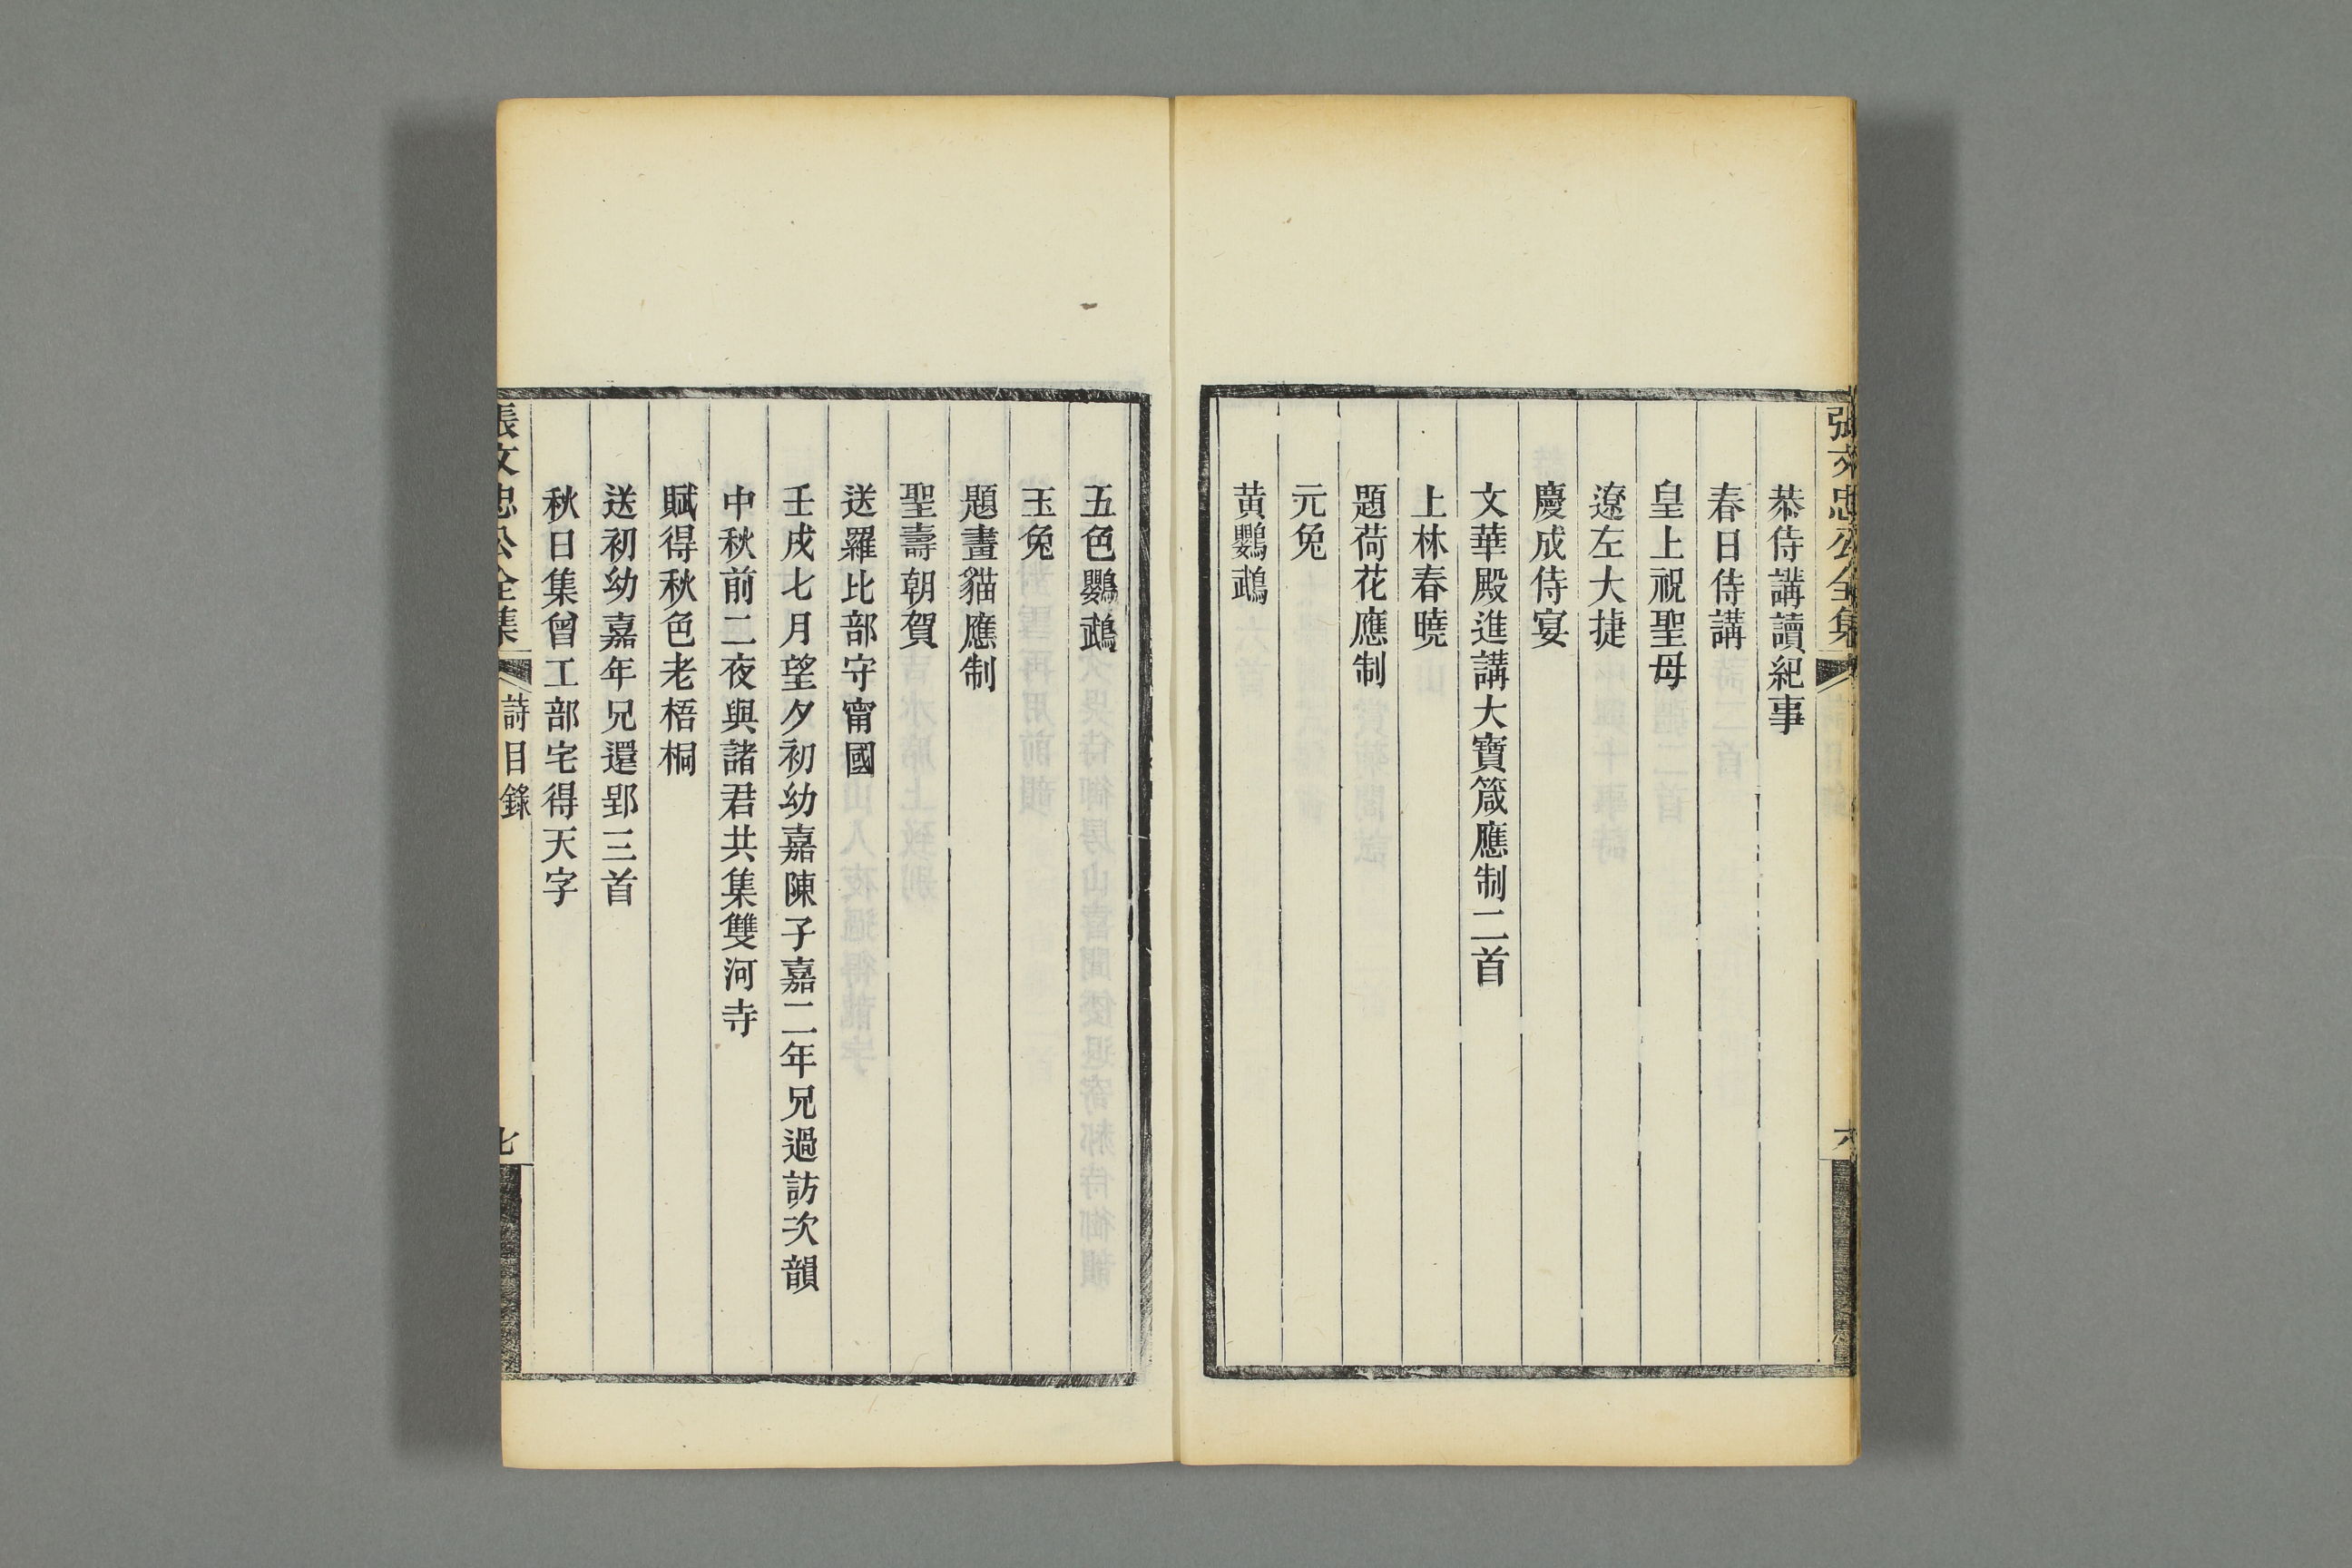 張文忠公全集
六
恭侍講讀紀事
春日侍講
皇上祝聖母
遼左大捷
慶成侍宴
文華殿進講大寶箴應制二首
上林春曉
題荷花應制
元兔
黃鸚鵡
五色鸚鵡
玉兔
題畫貓應制
聖壽朝賀
送羅比部守甯國
壬戌七月望夕初幼嘉陳子嘉二年兄過訪次韻
中秋前二夜與諸君共集雙河寺
賦得秋色老梧桐
送初幼嘉年兄還郢三首
秋日集曾工部宅得天字
張文忠公全集
詩目錄
七